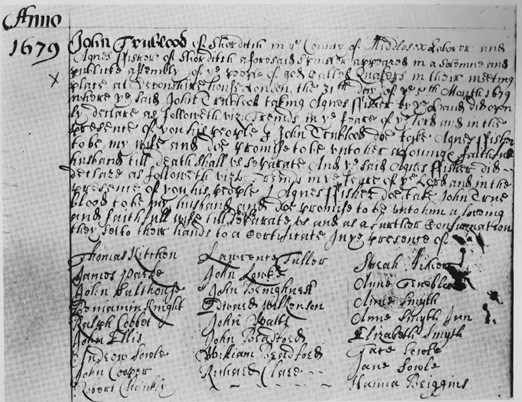 Anno
1679
John Trublood of Shorditch in ye County of Middlesex Laborer and
Agnes Fisher of Shorditch aforesaid Spinster appeared in a Solemne and
publicke assembly of ye people of god called Quakers in their meeting
place at Devonshire house London the 31th Day of ye 5th Month 1679
where ye said John Trublood taking Agnes Fisher by ye hand did open
ly declare as followeth viz friends in ye feare of ye Lord and in the
presence of you his people I John Trublood doe take Agnes Fisher
to be my wife and doe promise to be unto her a Loveing faithfull
husband till death shall us separate And ye said Agnes Fisher did
declare as followeth viz friends in ye feare of ye Lord and in the
presence of you his people I Agnes Fisher doe take John True
blood to be my husband and doe promise to be unto him a loving
and faithfull wife till Death separate us and as a further Confirmation
they sett to their hands to a Certificate In ye presence of
Thomas Kitchen Lawrence Fullor Sarah
James John Lowle Anne Trublood
John Bulthouse John Anne Smyth
Benjamin Knight Edward Wilkenson Anne Smyth Jun
Ralph Cobbet John Elizabeth Smyth
John Ellis John Bradford Kate Lowle
Andrew Lowle William Bradford Jane Lowle
John Cooper Richard Clare Hanna Briggins
Robert